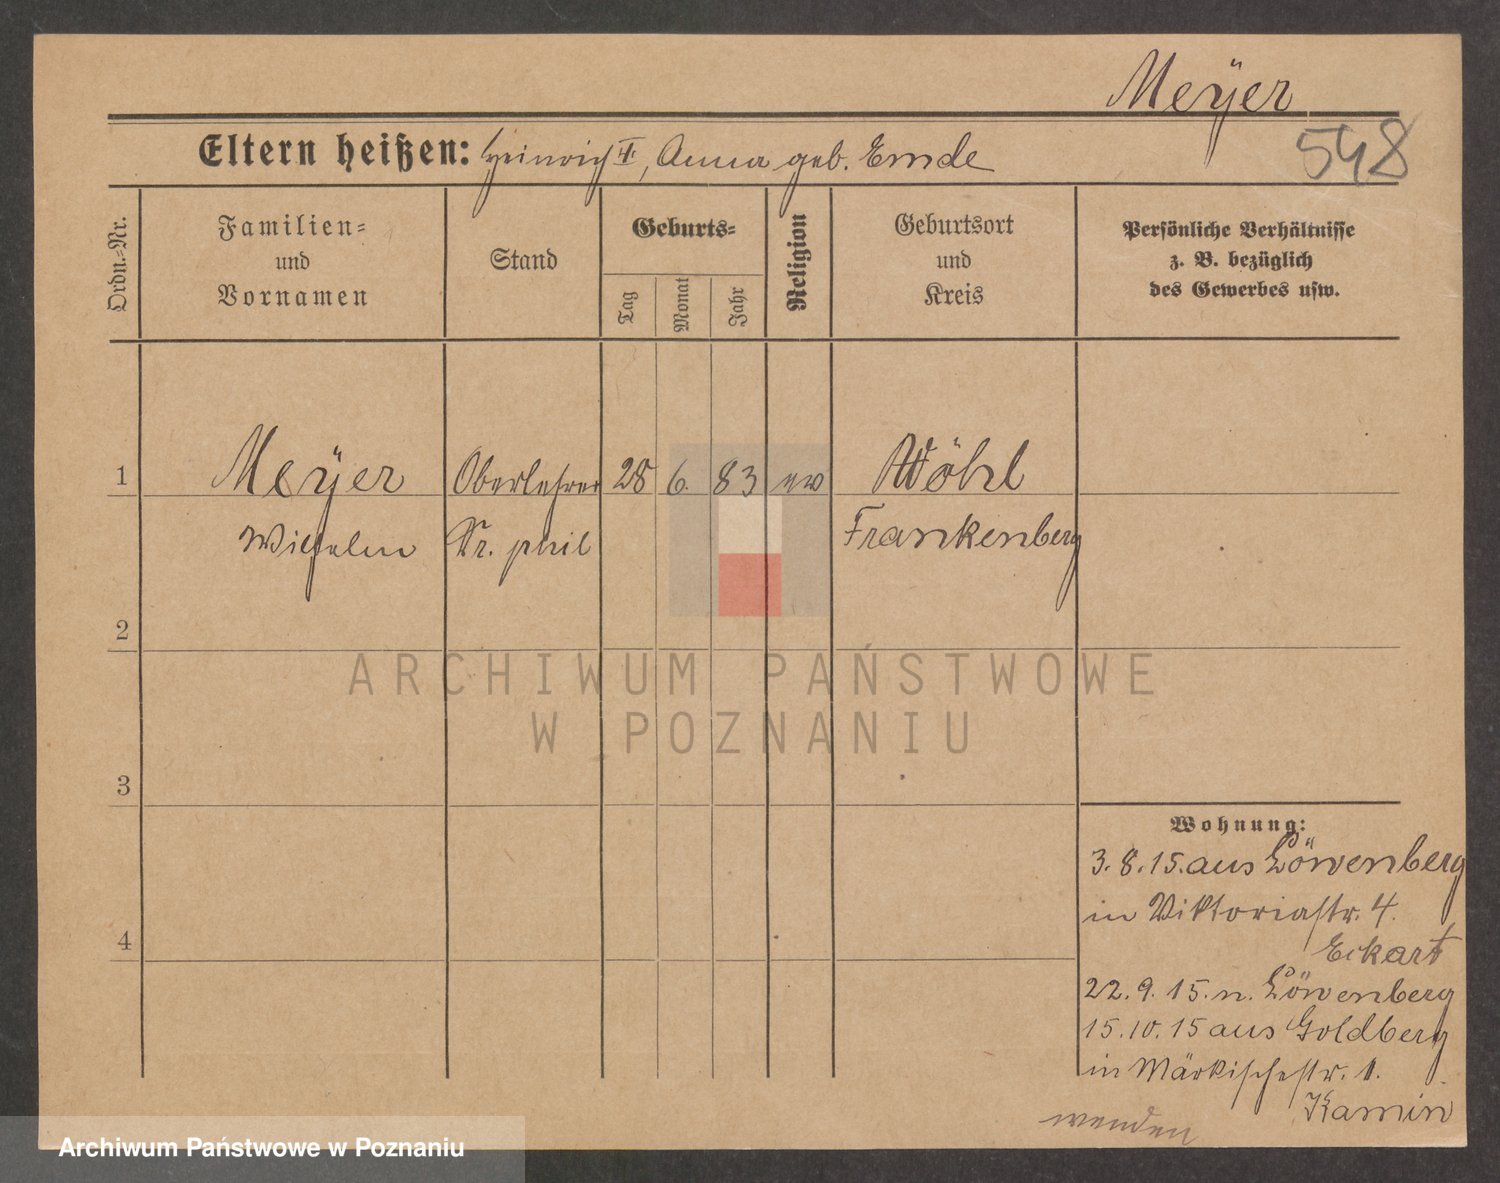 Meÿer
548
Eltern heißen: Heinrich II, Anna geb. Emde
Ordn.=Nr.
Familien=
und
Vornamen
Stand
Geburts=
Tag
Monat
Jahr
Religion
Geburtsort
und
Kreis
Persönliche Verhältnisse
z. B. bezüglich
des Gewerbes usw.
1 Meÿer Oberlehrer 28 6. 83 ev Wöhl
Wilhelm Dr. phil Frankenberg
2
ARCHIWUM PAŃSTWOWE
W POZNANIU
3
Wohnung:
3. 8. 15. aus Löwenberg
in Viktoriastr. 4.
4
Eckart
22. 9. 15. n. Löwenberg
15. 10. 15 aus Goldberg
in Märkischestr. 1.
Kamin
wenden
Archiwum Państwowe w Poznaniu